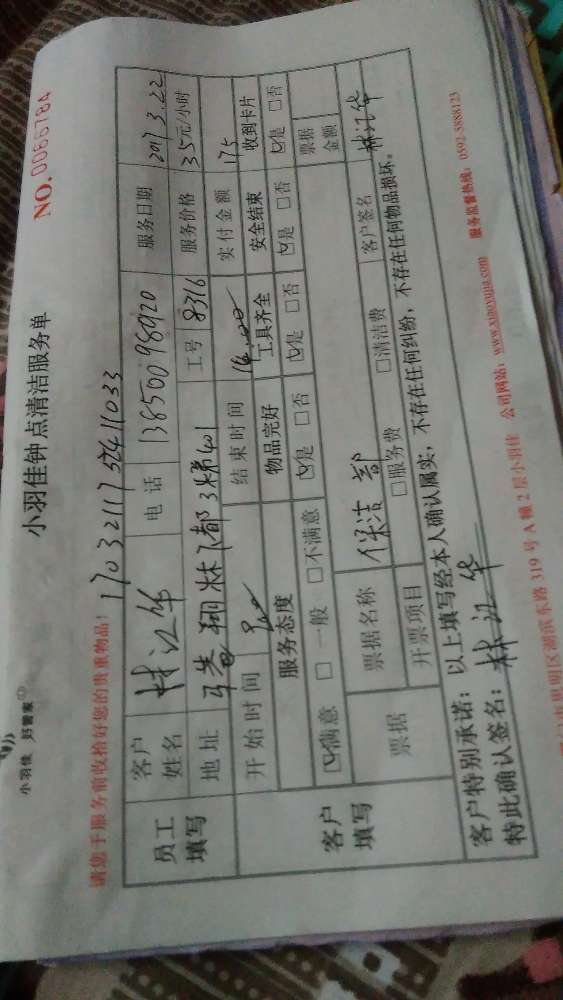 小羽佳 好管家
小羽佳钟点清洁服务单
NO.0066784
请您于服务前收拾好您的贵重物品! 170321175411033
员工填写
客户姓名 林江华 电话 13850098920 服务日期 2017.3.22
地址 3梯401 工号 8316 服务价格 35元/小时
客户填写
开始时间 结束时间 14.00 实付金额 175
服务态度 物品完好 工具齐全 安全结束 收到卡片
☑满意 □一般 □不满意 ☑是 □否 ☑是 □否 ☑是 □否 ☑是 □否
票据 票据名称 保洁部 票据金额
开票项目 □服务费 □清洁费 客户签名 林江华
客户特别承诺:以上填写经本人确认属实,不存在任何纠纷,不存在任何物品损坏。
特此确认签名:林江华
思明区湖滨东路319号A幢2层小羽佳 公司网站:www.xiaoyujia.com 服务监督热线:0592-5888123